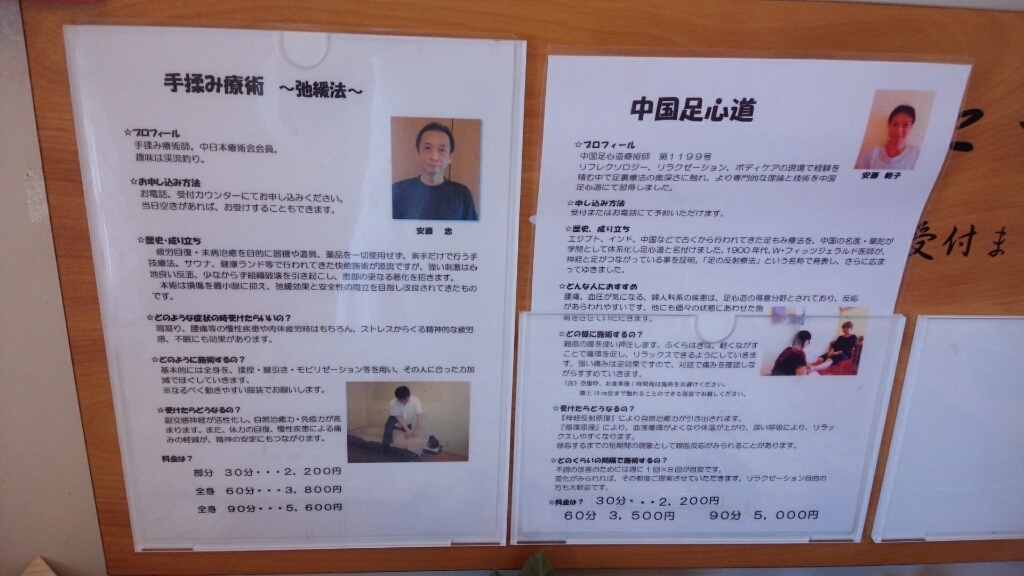 手揉み療術 ～弛緩法～
☆プロフィール
手揉み療術師。中日本療術会会員。
趣味は渓流釣り。
☆お申し込み方法
お電話、受付カウンターにてお申し込みください。
当日空きがあれば、お受けすることもできます。
安藤 忠
☆歴史・成り立ち
疲労回復・未病治癒を目的に器機や道具、薬品を一切使用せず、素手だけで行う手
技療法。サウナ、健康ランド等で行われてきた快癒施術が源流ですが、強い刺激は心
地良い反面、少なからず組織破壊を引き起こし、患部の更なる悪化を招きます。
本術は損傷を最小限に抑え、弛緩効果と安全性の両立を目指し改良されてきたもの
です。
☆どのような症状の時受けたらいいの？
肩凝り、腰痛等の慢性疾患や肉体疲労時はもちろん、ストレスからくる精神的な疲労
感、不眠にも効果があります。
☆どのように施術するの？
基本的には全身を、揉捏・腱引き・モビリゼーション等を用い、その人に合った力加
減でほぐしていきます。
※なるべく動きやすい服装でお願いします。
☆受けたらどうなるの？
副交感神経が活性化し、自然治癒力・免疫力が高
まります。また、体力の回復、慢性疾患による痛
みの軽減が、精神の安定にもつながります。
料金は？
部分 30分・・・2,200円
全身 60分・・・3,800円
全身 90分・・・5,600円
中国足心道
☆プロフィール
中国足心道療術師 第1199号
リフレクソロジー、リラクゼーション、ボディケアの現場で経験を
積む中で足裏療法の奥深さに触れ、より専門的な理論と技術を中国
足心道にて習得しました。
安藤 子
☆申し込み方法
受付またはお電話にて予約いただけます。
☆歴史、成り立ち
エジプト、インド、中国などで古くから行われてきた足もみ療法を、中国の名医・華陀が
学問として体系化し足心道と名付けました。1900年代、W・フィッツジェラルド医師が、
神経と足がつながっている事を説明。「足の反射療法」という名称で発表し、さらに広ま
ってゆきました。
☆どんな人におすすめ
腰痛、血圧が気になる、婦人科系の疾患は、足心道の得意分野とされており、反応
があらわれやすいです。他にも個々の状態にあわせた施
術をさせていただきます。
☆どの様に施術するの？
親指の腹を使い押圧します。ふくらはぎは、軽くながす
ことで循環を促し、リラックスできるようにしていきま
す。強い痛みは逆効果ですので、対話で痛みを確認しな
がらすすめていきます。
(注) 空腹時、お食事後1時間程は施術をお避けください。
膝上10cm位まで触れることのできる服装でお越しください。
☆受けたらどうなるの？
『神経反射原理』により自然治癒力が引き出されます。
『循環原理』により、血液循環がよくなり体温が上がり、深い呼吸により、リラッ
クスしやすくなります。
順応するまでの短期間の現象として瞑眩反応がみられることがあります。
☆どのくらいの間隔で施術するの？
不調の改善のためには週に1回×8回が目安です。
変化がみられれば、その都度ご提案させていただきます。リラクゼーション目的の
方も大歓迎です。
☆料金は？ 30分・・・2,200円
60分 3,500円 90分 5,000円
受付ま